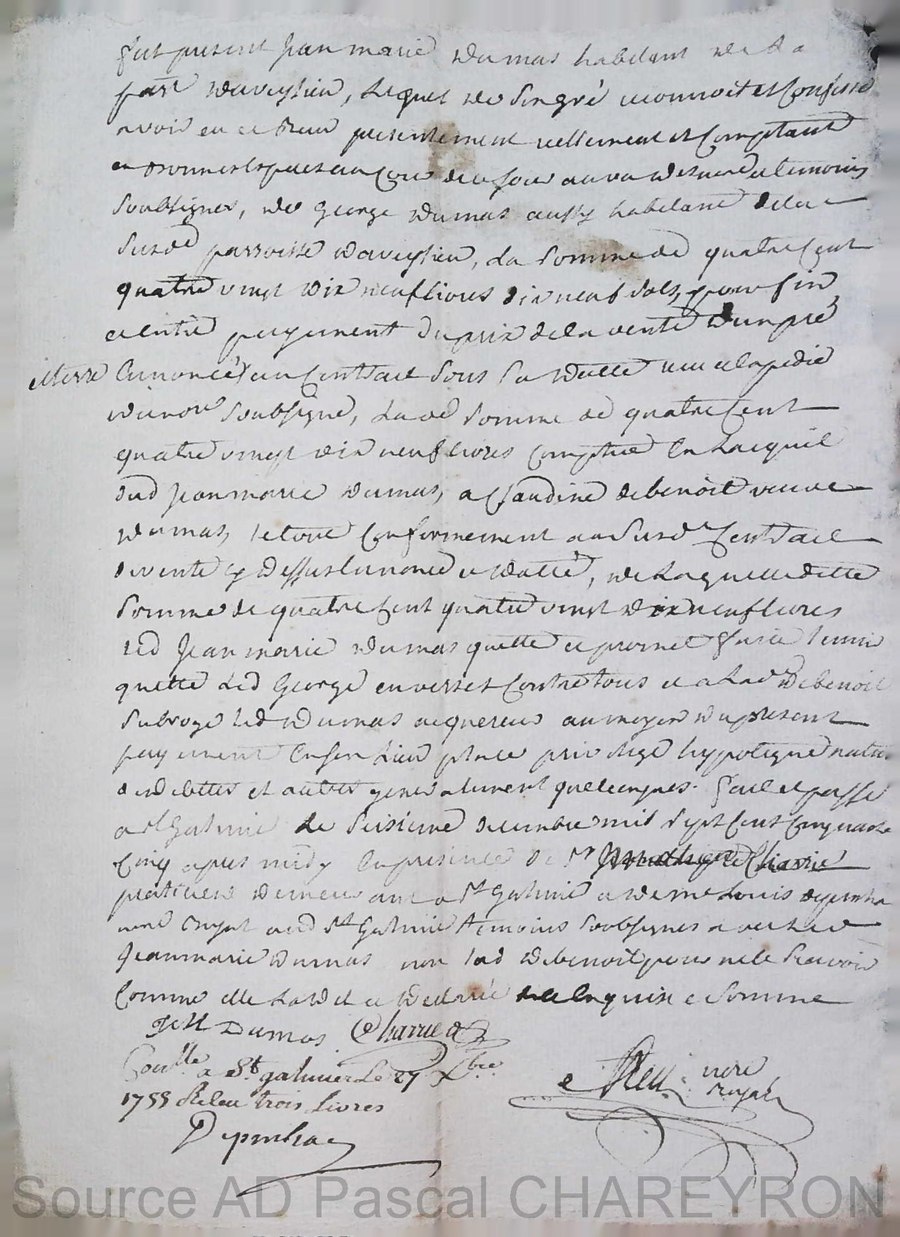 fut present Jean marie Dumas habitant de la
parr daveysieu, lequel de son gré reconnoit et confesse
avoir eu et Receu presentement reellement et comptant
en
soubsigner, de George Dumas aussy habitant de la
susde parroisse daveysieu, la somme de quatre cent
quatre vingt dix neuf livres dix neuf sols, pour fin
et entié payement du prix de la vente dun pré
enoncée au Contrait sous sa datte recu
du nore soubsigné, lade somme de quatre Cent
quatre vingt dix neuf livres comptée en
dud Jean marie Dumas, a Claudine debenoit veuve
Dumas, le tout Conformement au susd Contrait
de vente cy dessus enoncé et datté, de laquelle ditte
somme de quatre Cent quatre vingt dix neuf livres
led Jean marie Dumas quitte et promet faire tenir
quitte led George envers et contre tous et a lade debenoit
subrogé led Dumas acquereur au moyen du present
payement en son lieu place privilege hypoteque nature
de dettes et autres generalement quelconques. fait et passé
a St Galmier le
cinq apres midy en presence de Sr Charrie
praticien demeurant a St Galmier et de me Louis depinhac
nore Royal aud St Galmier temoins soubsignes avec led
Jean marie Dumas non lad debenoit pour ne le sçavoir
comme elle la dit et declaré de ce enquise et sommée
JM Dumas Charrie
Conlle a St galmier le 27 Xbre
1755 Receu trois livres
Depinhac
nore
Royal
Source AD Pascal CHAREYRON